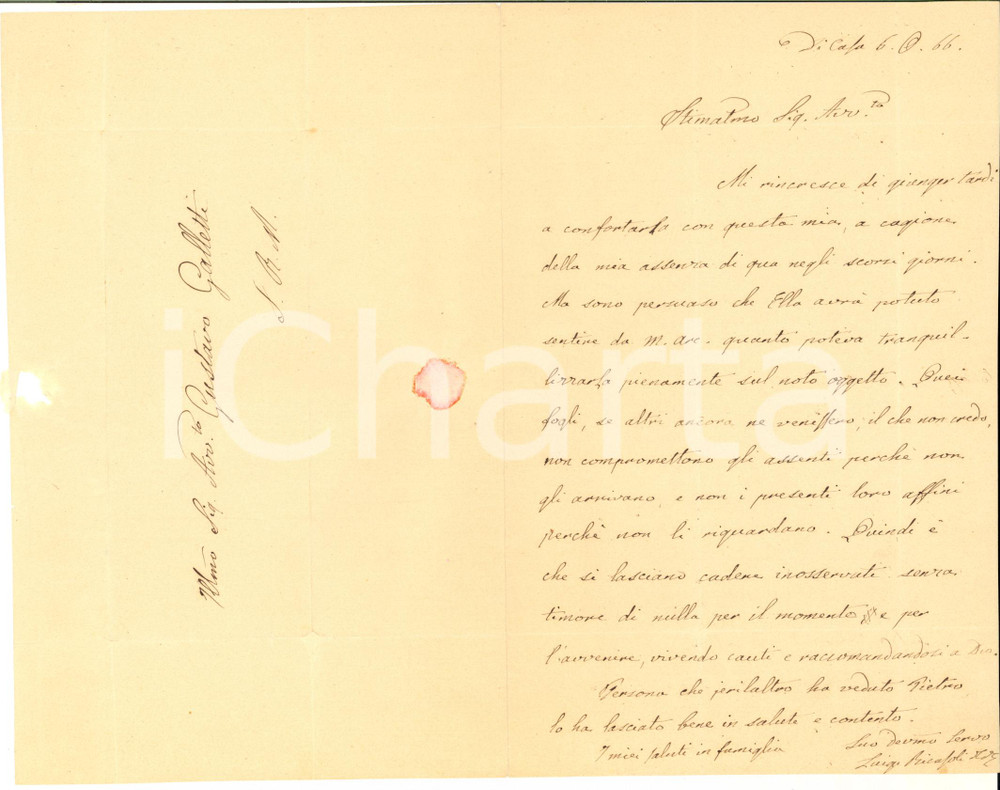 Di Casa 6. O. 66.
Stimatmo Sig. Avv.to
Mi rincresce di giunger tardi
a confortarla con questa mia, a cagione
della mia assenza di qua negli scorsi giorni.
Ma sono persuaso che Ella avrà potuto
sentire da M. Arc. quanto poteva tranquil-
lizzarla pienamente sul noto oggetto. Quei
fogli, se altri ancora ne venissero, il che non credo,
non compromettono gli assenti perchè non
gli arrivano, e non i presenti loro affini
perchè non li riguardano. Quindi è
che si lasciano cadere inosservati senza
timore di nulla per il momento, e per
l'avvenire, vivendo cauti e raccomandandosi a Dio.
Persona che jerilaltro ha veduto Pietro
lo ha lasciato bene in salute e contento.
I miei saluti in famiglia
Suo Devmo Servo
Luigi Ricasoli
Illmo Sig. Avv.to Gustavo Galletti
S. R. M.
iCharta